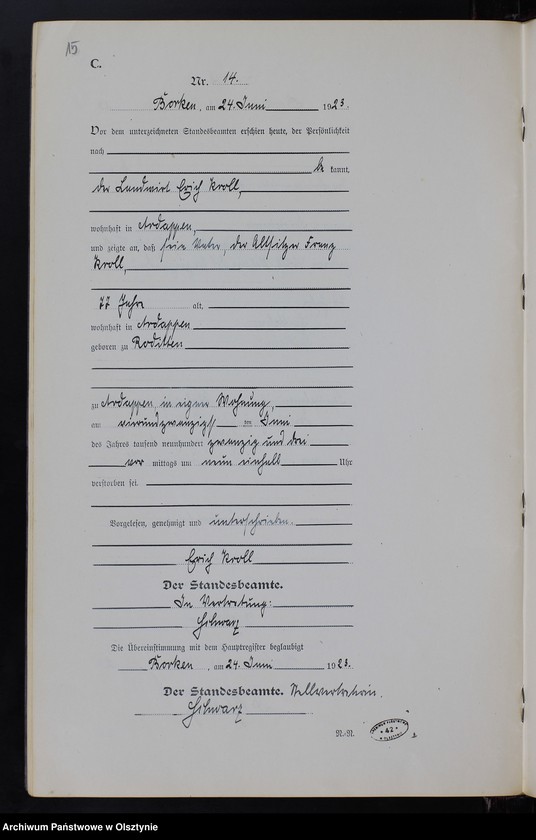 15
C.
Nr. 14.
Borken, am 24. Juni 1923.
Vor dem unterzeichneten Standesbeamten erschien heute, der Persönlichkeit
nach
be kannt,
der Landwirt Erich Kroll,
wohnhaft in Ardappen,
und zeigte an, daß sein Vater, der Altsitzer Franz
Kroll,
77 Jahre alt,
wohnhaft in Ardappen
geboren zu Roditten
zu Ardappen, in eigner Wohnung,
am vierundzwanzigst ten Juni
des Jahres tausend neunhundert zwanzig und drei
vor mittags um neun einhalb Uhr
verstorben sei.
Vorgelesen, genehmigt und unterschrieben.
Erich Kroll
Der Standesbeamte.
In Vertretung:
Schwarz
Die Übereinstimmung mit dem Hauptregister beglaubigt
Borken, am 24. Juni 1923.
Der Standesbeamte. Stellvertreter.
Schwarz
42
Archiwum Państwowe w Olsztynie